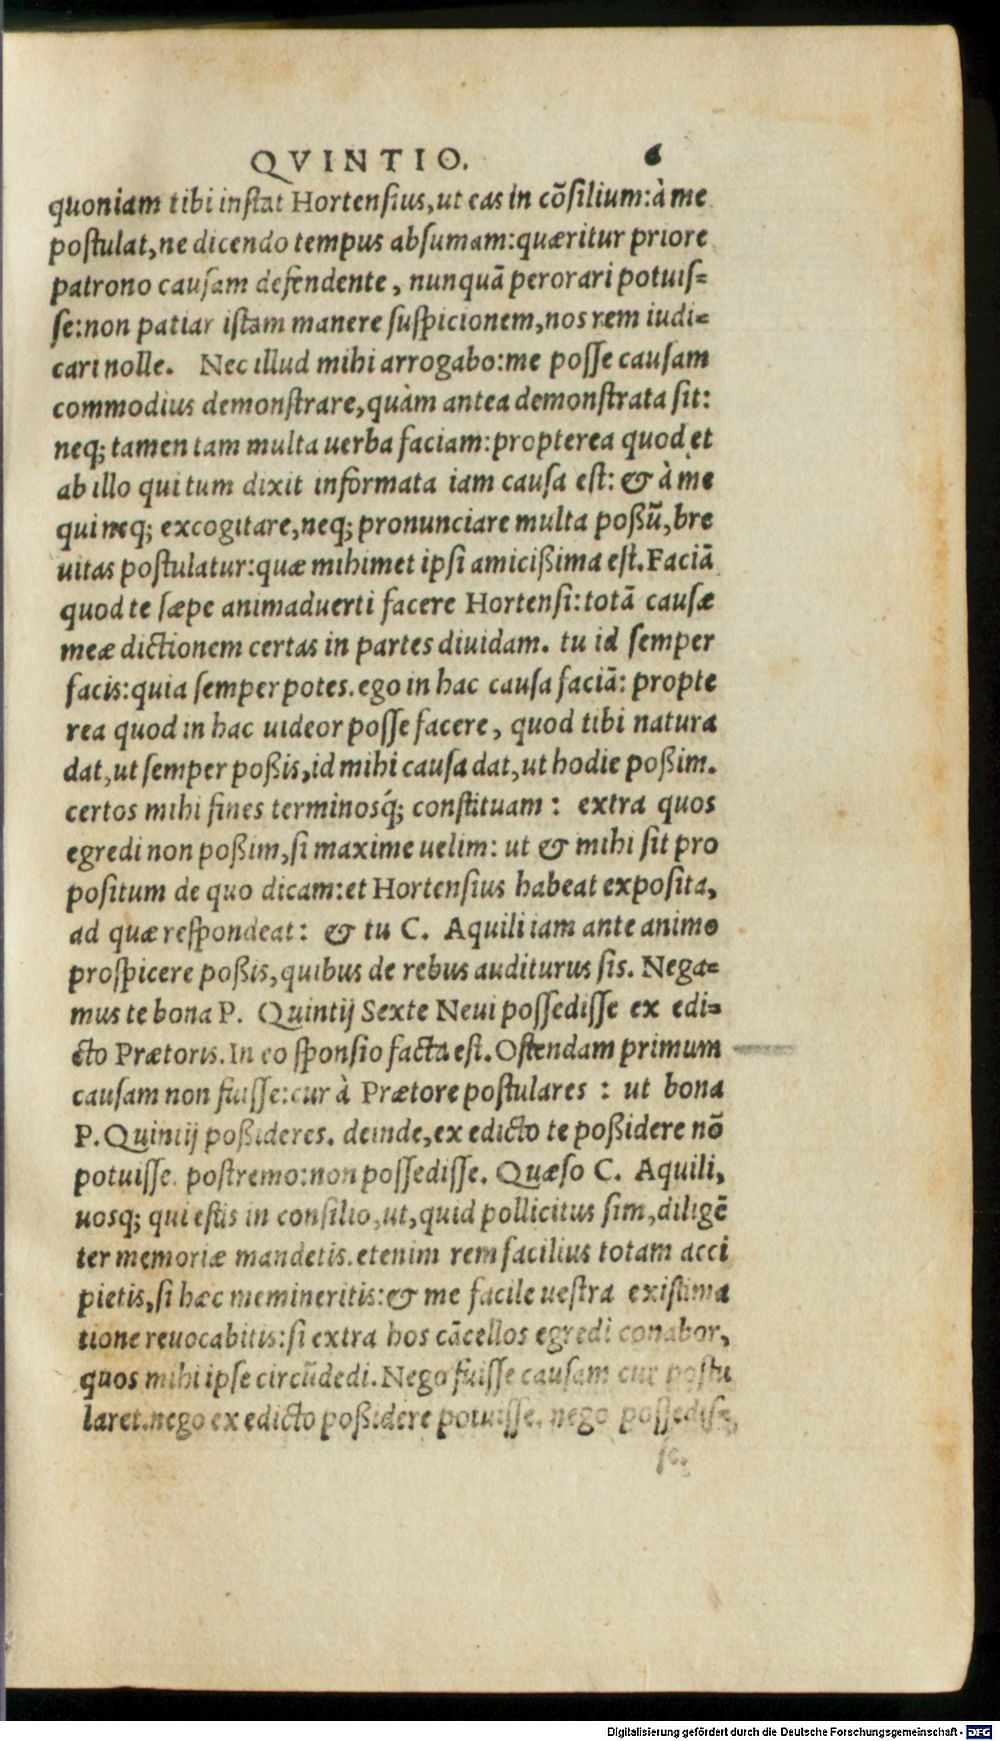 QVINTIO. 6
quoniam tibi instat Hortensius,ut eas in cõsilium:à me
postulat,ne dicendo tempus absumam:quæritur priore
patrono causam defendente, nunquã perorari potuis=
se:non patiar istam manere suspicionem,nos rem iudi=
cari nolle. Nec illud mihi arrogabo:me posse causam
commodius demonstrare,quàm antea demonstrata sit:
neq; tamen tam multa uerba faciam:propterea quod et
ab illo qui tum dixit informata iam causa est: & à me
qui neq; excogitare,neq; pronunciare multa poßũ,bre
uitas postulatur:quæ mihimet ipsi amicißima est.Faciã
quod te sæpe animaduerti facere Hortensi:totã causæ
meæ dictionem certas in partes diuidam. tu id semper
facis:quia semper potes.ego in hac causa faciã: propte
rea quod in hac uideor posse facere, quod tibi natura
dat,ut semper poßis,id mihi causa dat,ut hodie poßim.
certos mihi fines terminosq́; constituam: extra quos
egredi non poßim,si maxime uelim: ut & mihi sit pro
positum de quo dicam:et Hortensius habeat exposita,
ad quæ respondeat: & tu C. Aquili iam ante animo
prospicere poßis,quibus de rebus auditurus sis. Nega=
mus te bona P. Quintij Sexte Neui possedisse ex edi=
cto Prætoris.In eo sponsio facta est.Ostendam primum
causam non fuisse:cur à Prætore postulares: ut bona
P.Quintij poßideres. deinde,ex edicto te poßidere nõ
potuisse. postremo:non possedisse. Quæso C. Aquili,
uosq; qui estis in consilio,ut,quid pollicitus sim,diligẽ
ter memoriæ mandetis.etenim rem facilius totam acci
pietis,si hæc memineritis:& me facile uestra existima
tione reuocabitis:si extra hos cãcellos egredi conabor,
quos mihi ipse circũdedi.Nego fuisse causam cur postu
laret.nego ex edicto poßidere potuisse. nego possedis=
se.
Digitalisierung gefördert durch die Deutsche Forschungsgemeinschaft - DFG